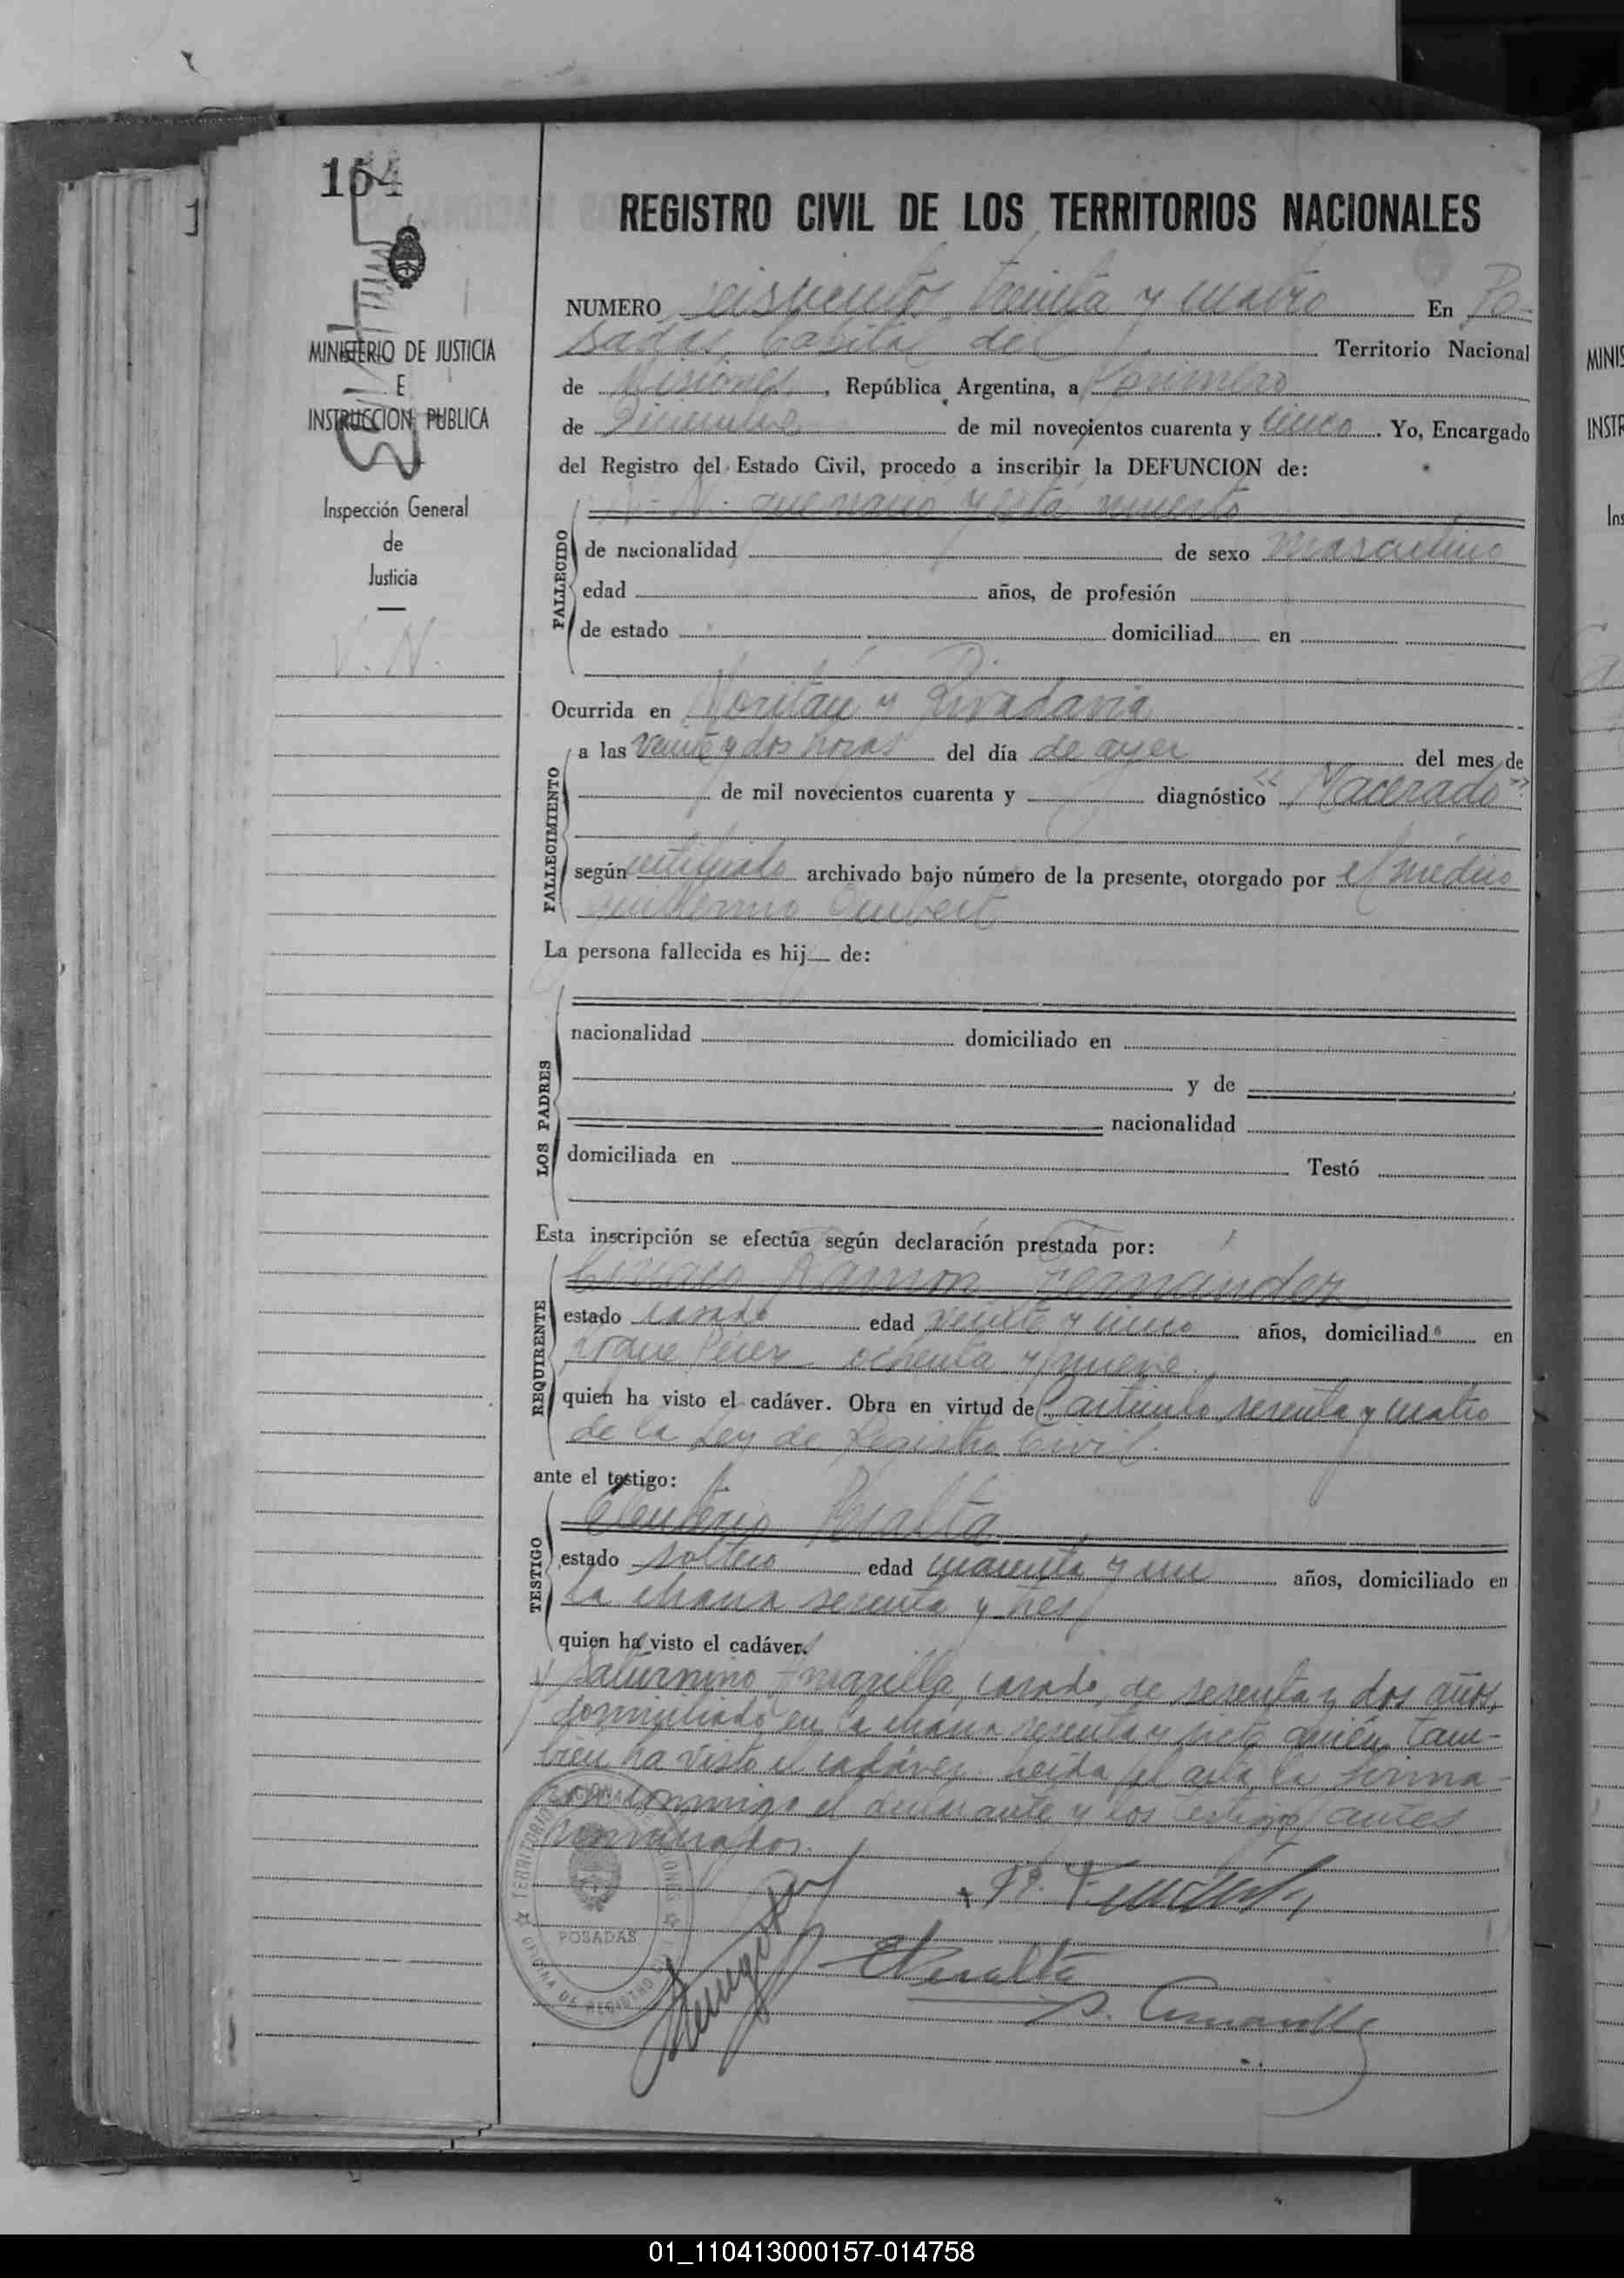 154
MINISTERIO DE JUSTICIA
E
INSTRUCCION PUBLICA
Inspección General
de
Justicia
N. N.
REGISTRO CIVIL DE LOS TERRITORIOS NACIONALES
NUMERO seiscientos treinta y cuatro En Po-
sadas, Capital del Territorio Nacional
de Misiones, República Argentina, a primero
de Diciembre de mil novecientos cuarenta y cinco. Yo, Encargado
del Registro del Estado Civil, procedo a inscribir la DEFUNCION de:
N-N- que nacio y esta muerto
FALLECIDO
de nacionalidad de sexo masculino
edad años, de profesión
de estado domiciliad en
Ocurrida en y Rivadavia
FALLECIMIENTO
a las veinte y dos horas del día de ayer del mes de
de mil novecientos cuarenta y diagnóstico "Macerado"
según certificado archivado bajo número de la presente, otorgado por el médico
Guillermo
La persona fallecida es hij de:
LOS PADRES
nacionalidad domiciliado en
y de
nacionalidad
domiciliada en Testó
Esta inscripción se efectúa según declaración prestada por:
REQUIRENTE
Ciriaco Ramon Fernandez
estado casado edad veinte y cinco años, domiciliado en
Roque Perez ochenta y nueve.
quien ha visto el cadáver. Obra en virtud del articulo sesenta y cuatro
de la Ley de Registro Civil.
ante el testigo:
TESTIGO
Eleuterio Peralta
estado soltero edad cuarenta y un años, domiciliado en
la chacra sesenta y tres
quien ha visto el cadáver.
y Saturnino Amarilla, casado, de sesenta y dos años,
domiciliado en la chacra sesenta y siete quien tam-
bien ha visto el cadáver. Leída el acta, la firma-
ron conmigo el declarante y los testigos antes
nombrados.
POSADAS
OFICINA DE REGISTRO
E Peralta
S. Amarilla
01_110413000157-014758